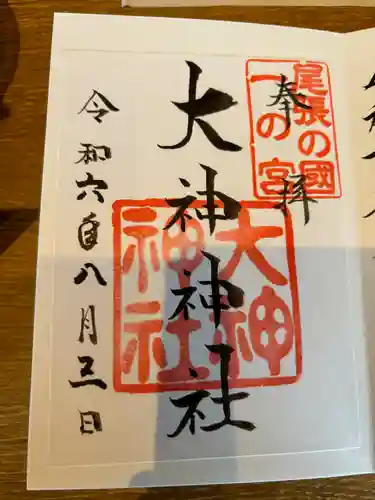 尾張の國
一の宮
奉拝
大神神社
大神
神社
令和六年八月五日